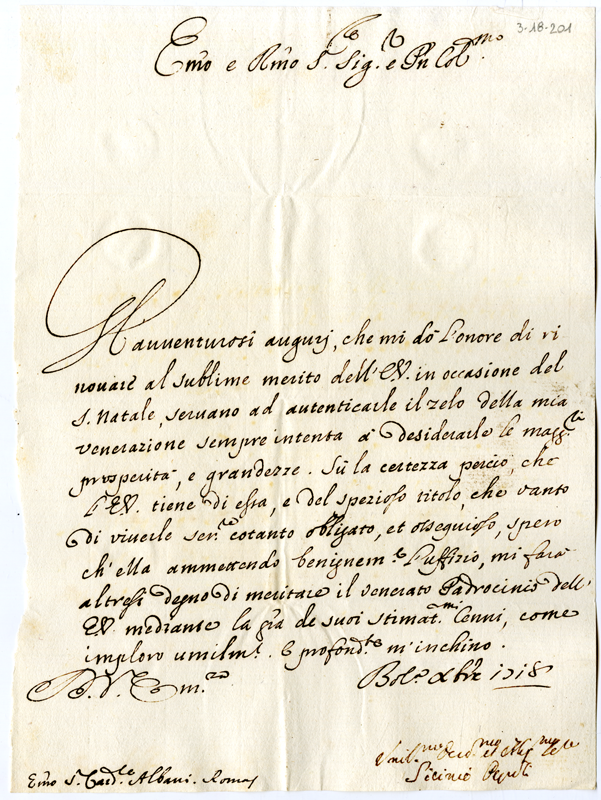 3-18-201
Emo e Rmo S.r Sig.re e Pn Col.mo
avventurosi augurj, che mi dò l'onore di ri
novare al sublime merito dell'EV. in occasione del
S. Natale, servano ad autenticarle il zelo della mia
venerazione sempre intenta à desiderarle le magg.ri
prosperità, e grandezze. Sù la certezza perciò, che
l'EV. tiene di essa, e del spezioso titolo, che vanto
di viverle ser.re cotanto obligato, et ossequioso, spero
ch'ella ammettendo benignem.te l'uffizio, mi farà
altresì degno di meritare il venerato Padrocinio dell'
EV. mediante la gra de suoi stimat.mi Cenni, come
imploro umilm.e. E profond.te m'inchino.
D. V. Em.za
Bol.a Xbre 1718
Umil.mo Dev.mo et
Sicinio Pepoli
Emo S.r Card.le Albani. Roma